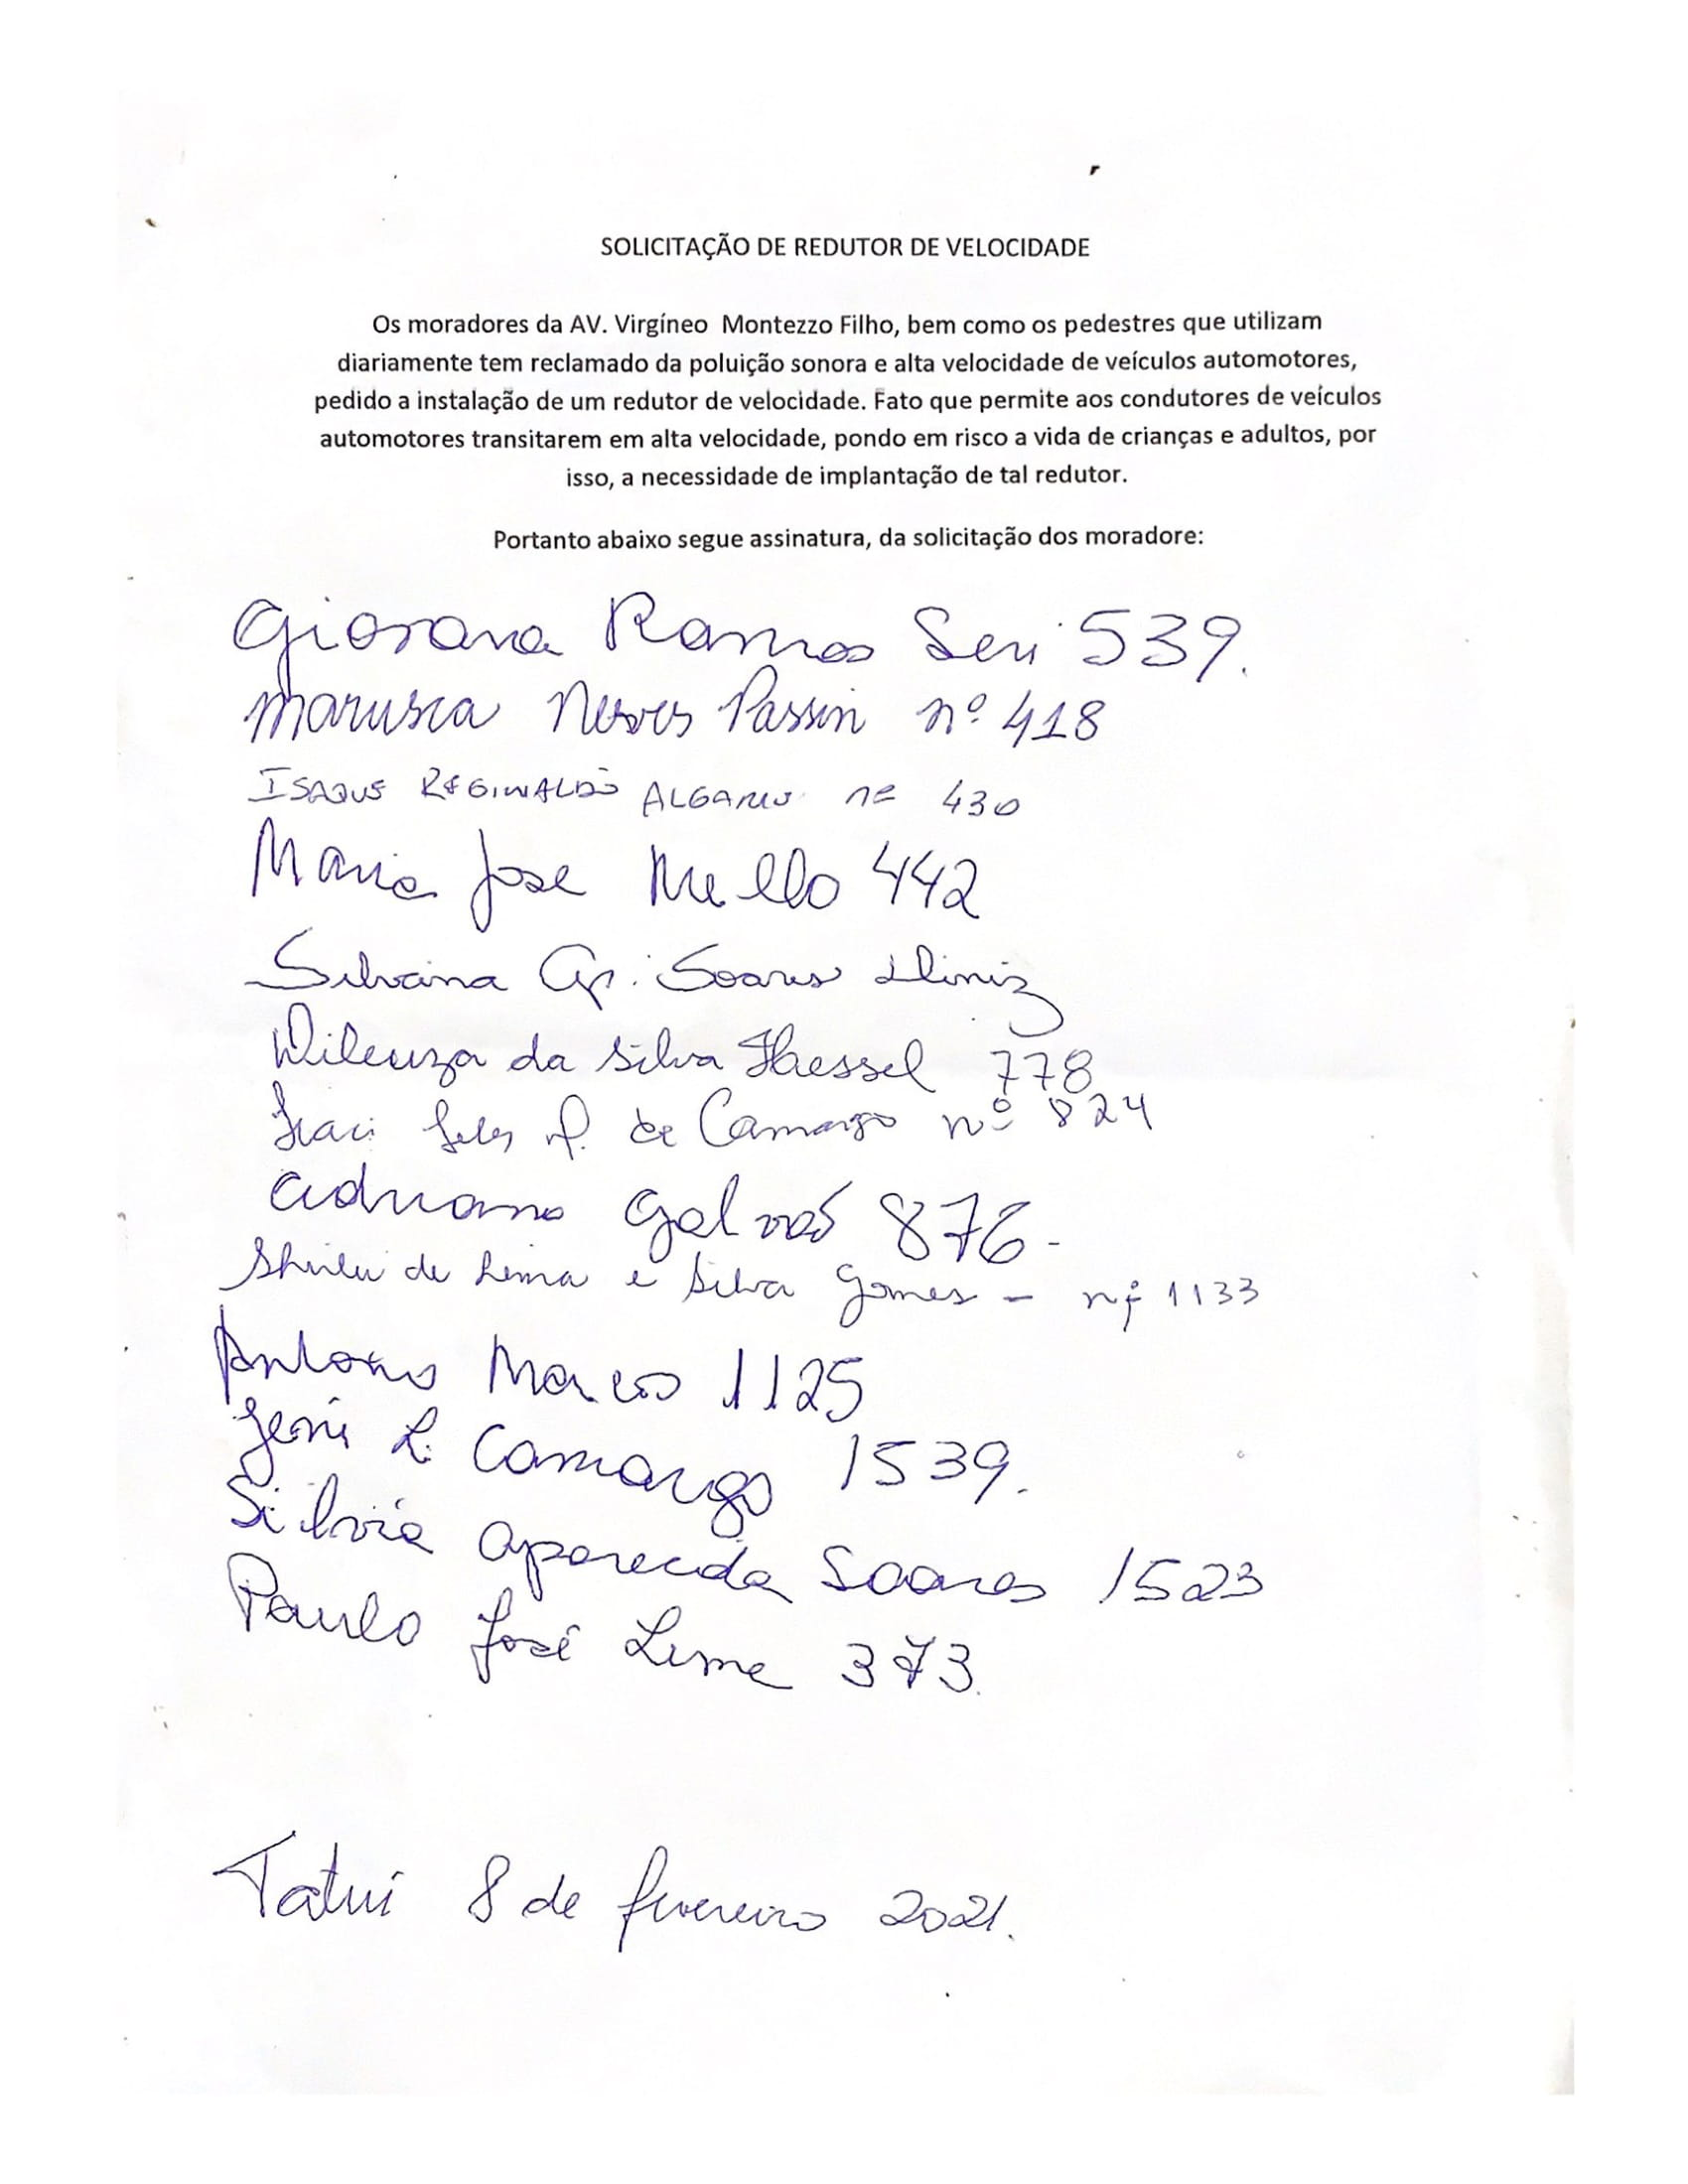 SOLICITAÇÃO DE REDUTOR DE VELOCIDADE
Os moradores da AV. Virgíneo Montezzo Filho, bem como os pedestres que utilizam
diariamente tem reclamado da poluição sonora e alta velocidade de veículos automotores,
pedido a instalação de um redutor de velocidade. Fato que permite aos condutores de veículos
automotores transitarem em alta velocidade, pondo em risco a vida de crianças e adultos, por
isso, a necessidade de implantação de tal redutor.
Portanto abaixo segue assinatura, da solicitação dos moradore:
Giovana Ramos 539.
Marusca Neves Passin nº 418
ISAQUE REGINALDO nº 430
Maria Jose Mello 442
Silvana Ap. Soares Diniz
Dileuza da Silva Haessel 778
de Camargo nº 824
Adriano Galvão 876-
de Lima e Silva Gomes - nº 1133
Antonio Marcos 1125
L. Camargo 1539.
Silvia Aparecida Soares 1523
Paulo José Lima 373.
Tatuí 8 de fevereiro 2021.